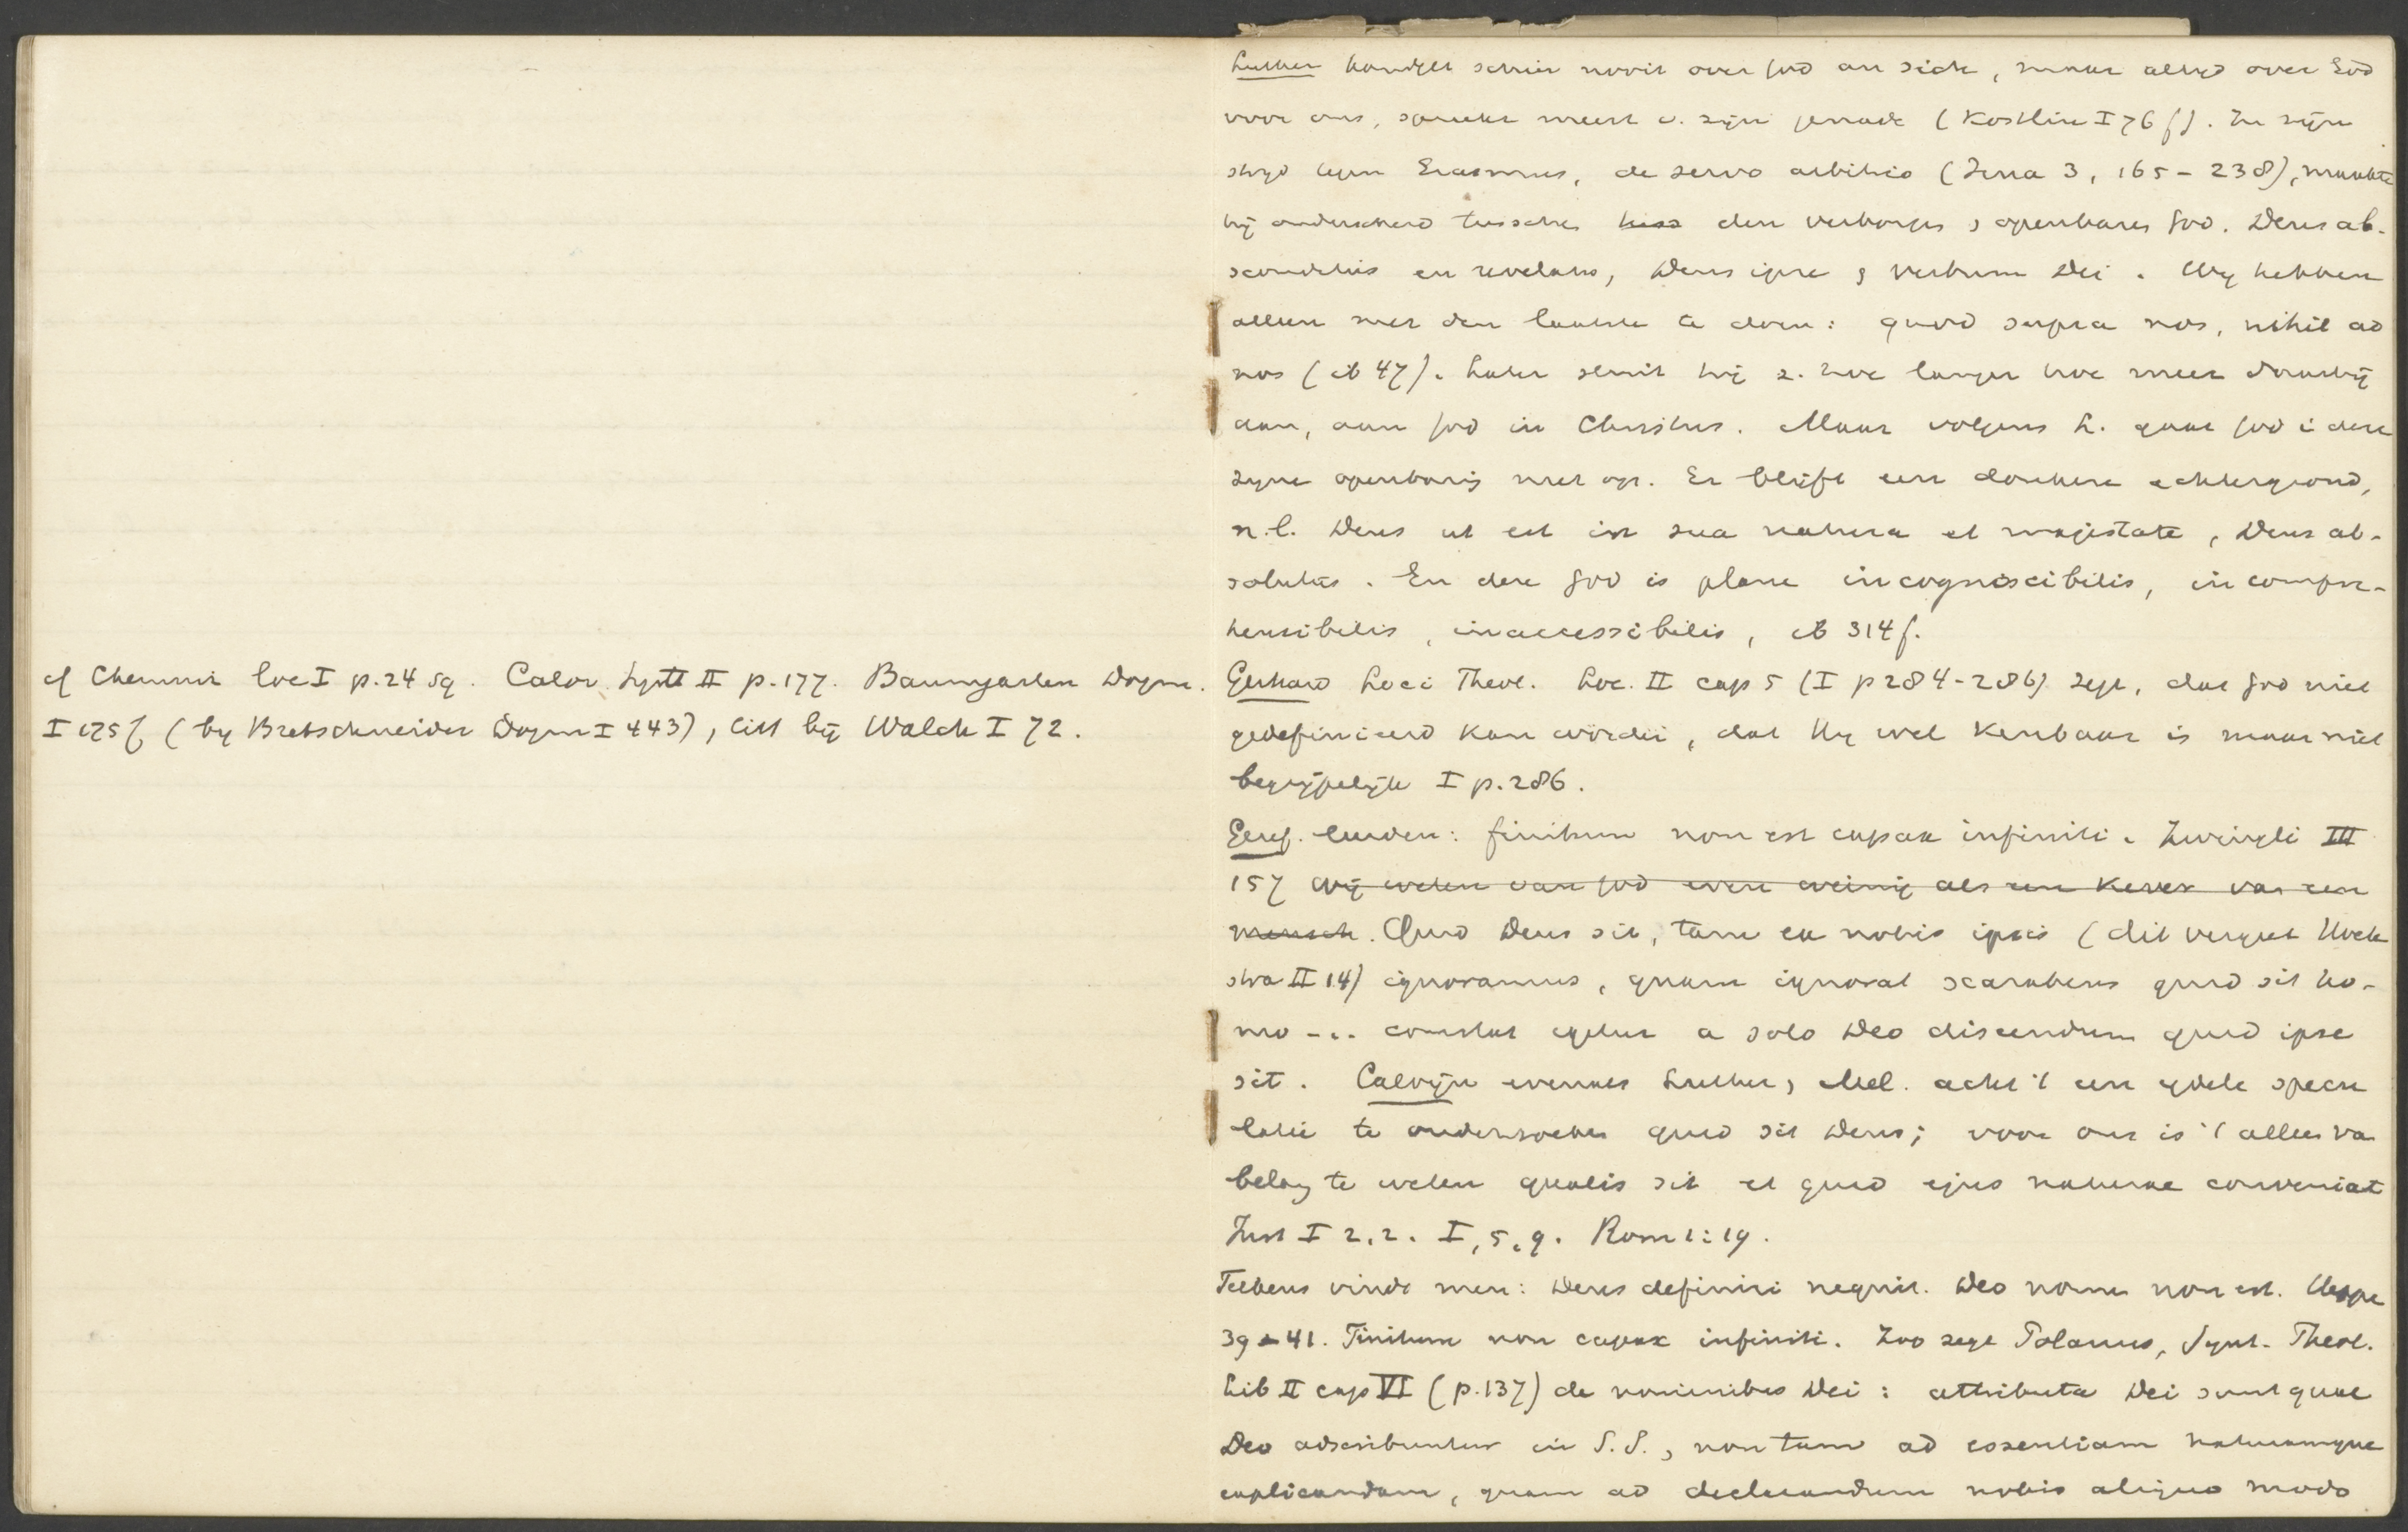 cf Chemni loc I p. 24 sq. Calov. Syst II p. 177. Baumgarten Dogm.
I 175 f (by Bretschneider Dogm I 443), litt bij Walch I 72.
Luther handelt schier nooit over God an sich, maar altyd over God
voor ons, spreekt meest v. zijn genade (Kostlin I 76 f). In zijn
stryd tegen Erasmus, de servo arbitrio (Jena 3, 165 - 238), maakte
hij onderscheid tusschen den verborgen & openbaren God. Deus ab-
sconditus en revelatus, Deus ipse & verbum Dei. Wy hebben
alleen met den laatste te doen: quod supra nos, nihil ad
nos (ib 47). Later sluit hij z. hoe langer hoe meer daarbij
aan, aan God in Christus. Maar volgens L. gaat God i deze
zyne openbarig niet op. Er blijft een donkere achtergrond,
n.l. Deus ut est in sua natura et majestate, Deus ab-
solutus. En deze God is plane incognoscibilis, incompre-
hensibilis, inaccessibilis, ib 314 f.
Gerhard Loci Theol. Loc. II cap 5 (I p 284-286) zegt, dat God niet
gedefinieerd kan worden, dat Hy wel kenbaar is maar niet
begrijpelijk I p. 286.
Geref. leerden: finitum non est capax infiniti. Zwingli III
157 wij weten van God even weinig als een kever van een
mensch. Quid Deus sit, tam ex nobis ipsis (dit verget Hoek
stra II 14) ignoramus, quam ignorat scarabeus quid sit ho-
mo -.. constat igitur a solo Deo discendum quid ipse
sit. Calvijn evenals Luther, Mel. acht 't een ydele specu
latie te onderzoeken quid sit Deus; voor ons is 't alleen va
belang te weten qualis sit et quid ejus naturae conveniat
Inst I 2, 2. I, 5, 9. Rom 1:19.
Telkens vindt men: Deus definiri nequit. Deo nomen non est. Heppe
39 - 41. Finitum non capax infiniti. Zoo zegt Polanus, Synt. Theol.
Lib II cap VI (p. 137) de nominibus Dei: attributa Dei sunt quae
Deo adscribuntur in S. S., non tam ad essentiam naturamque
explicandam, quam ad declarandum nobis aliquo modo